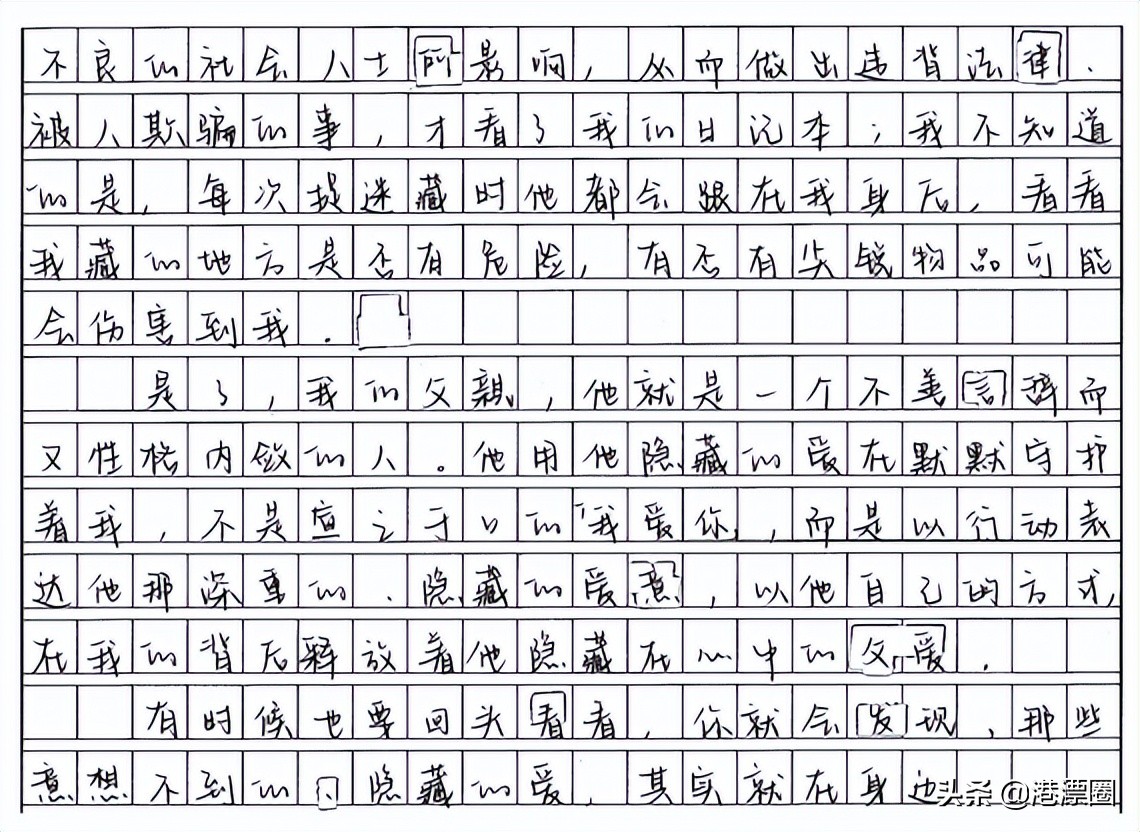 不良的社会人士所影响，从而做出违背法律、
被人欺骗的事，才看了我的日记本；我不知道
的是，每次捉迷藏时他都会跟在我身后，看看
我藏的地方是否有危险，有否有尖锐物品可能
会伤害到我。
是了，我的父親，他就是一个不善言辞而
又性格内敛的人。他用他隐藏的爱在默默守护
着我，不是宣之于口的「我爱你」，而是以行动表
达他那深重的、隐藏的爱意，以他自己的方式，
在我的背后释放着他隐藏在心中的父爱。
有时候也要回头看看，你就会发现，那些
意想不到的隐藏的爱，其实就在身边
头条 @港漂圈